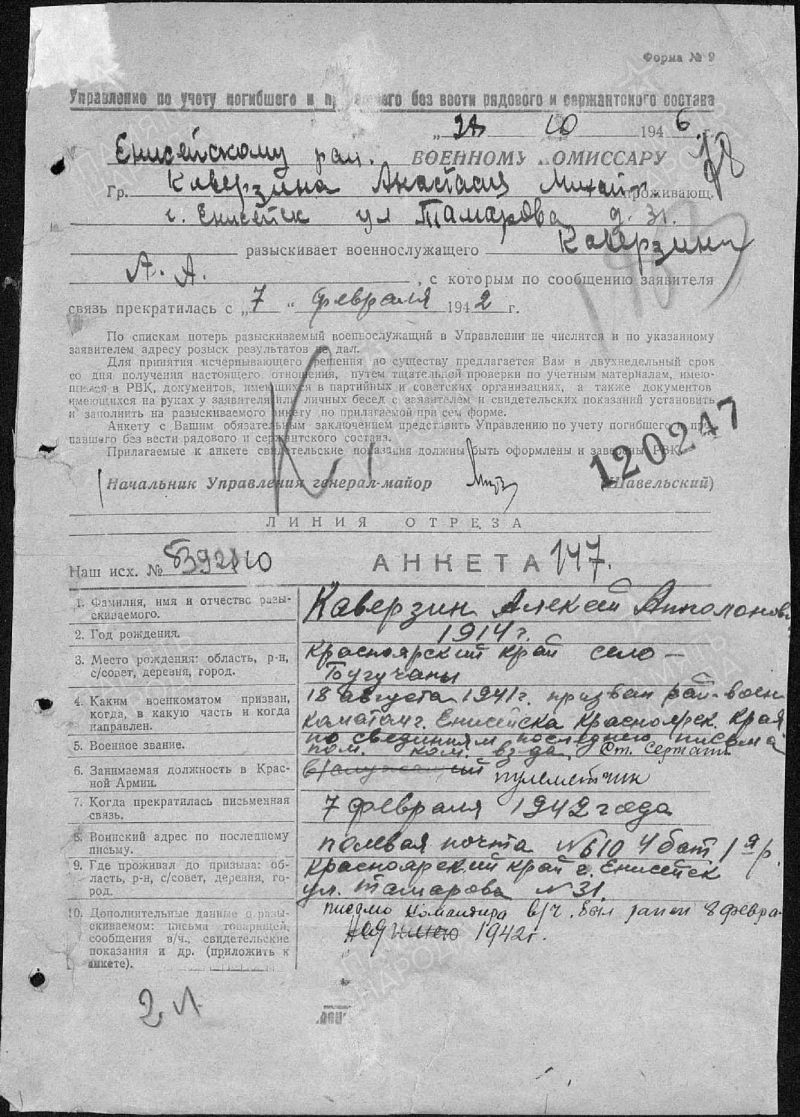 Форма № 9
Управление по учету погибшего и пропавшего без вести рядового и сержантского состава
„28 10 1946 г.
Енисейскому рай. ВОЕННОМУ КОМИССАРУ
Гр. Каверзина Анастасия Михайл проживающ.
г. Енисейск ул Тамарова д. 31.
разыскивает военнослужащего Каверзина
А. А. , с которым по сообщению заявителя
связь прекратилась с „7 " февраля 1942 г.
По спискам потерь разыскиваемый военнослужащий в Управлении не числится и по указанному
заявителем адресу розыск результатов не дал.
Для принятия исчерпывающего решения по существу предлагается Вам в двухнедельный срок
со дня получения настоящего отношения, путем тщательной проверки по учетным материалам, имею-
щимся в РВК, документов, имеющихся в партийных и советских организациях, а также документов
имеющихся на руках у заявителя или личных бесед с заявителем и свидетельских показаний установить
и заполнить на разыскиваемого анкету по прилагаемой при сем форме.
Анкету с Вашим обязательным заключением представить Управлению по учету погибшего и про-
павшего без вести рядового и сержантского состава.
Прилагаемые к анкете свидетельские показания должны быть оформлены и заверены РВК.
120247
Начальник Управления генерал-майор (Шавельский)
ЛИНИЯ ОТРЕЗА
Наш исх. № АНКЕТА 147.
1. Фамилия, имя и отчество разы-
скиваемого.
Каверзин Алексей Апполонов
2. Год рождения.
1914 г.
3. Место рождения: область, р-н,
с/совет, деревня, город.
Красноярский край село –
Богучаны
4. Каким военкоматом призван,
когда, в какую часть и когда
направлен.
18 августа 1941 г. призван рай-воен
каматам г. Енисейска Красноярск. края
по сведениям последнею письма
5. Военное звание.
пом. ком. взвда Ст. Сержант
6. Занимаемая должность в Крас-
ной Армии.
пулеметчик
7. Когда прекратилась письменная
связь.
7 февраля 1942 года
8. Воинский адрес по последнему
письму.
полевая почта № 610 4 бат. 1 я р.
9. Где проживал до призыва: об-
ласть, р-н, с/совет, деревня, го-
род.
Красноярский край г. Енисейск
ул. Тамарова № 31.
10. Дополнительные данные о разы-
скиваемом: письма товарищей,
сообщения в/ч., свидетельские
показания и др. (приложить к
анкете).
письмо командира в/ч. был ранен 8 февра-
1942 г.
2 л